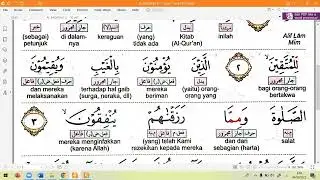 (sebagai) petunjuk
di dalamnya
keraguan
(yang) tidak ada
Kitab (Al-Qur'an)
inilah
Alif Lām Mīm
لِلْمُتَّقِيْنَ ۝٢ الَّذِيْنَ يُؤْمِنُوْنَ بِالْغَيْبِ وَيُقِيْمُوْنَ
dan mereka melaksanakan
terhadap hal gaib (surga, neraka, dll)
mereka beriman
(yaitu) orang-orang yang
bagi orang-orang bertakwa
الصَّلٰوةَ وَمِمَّا رَزَقْنٰهُمْ يُنْفِقُوْنَ ۝٣
mereka menginfakkan (karena Allah)
(yang) telah Kami rezekikan kepada mereka
dan dari sebagian (harta)
salat